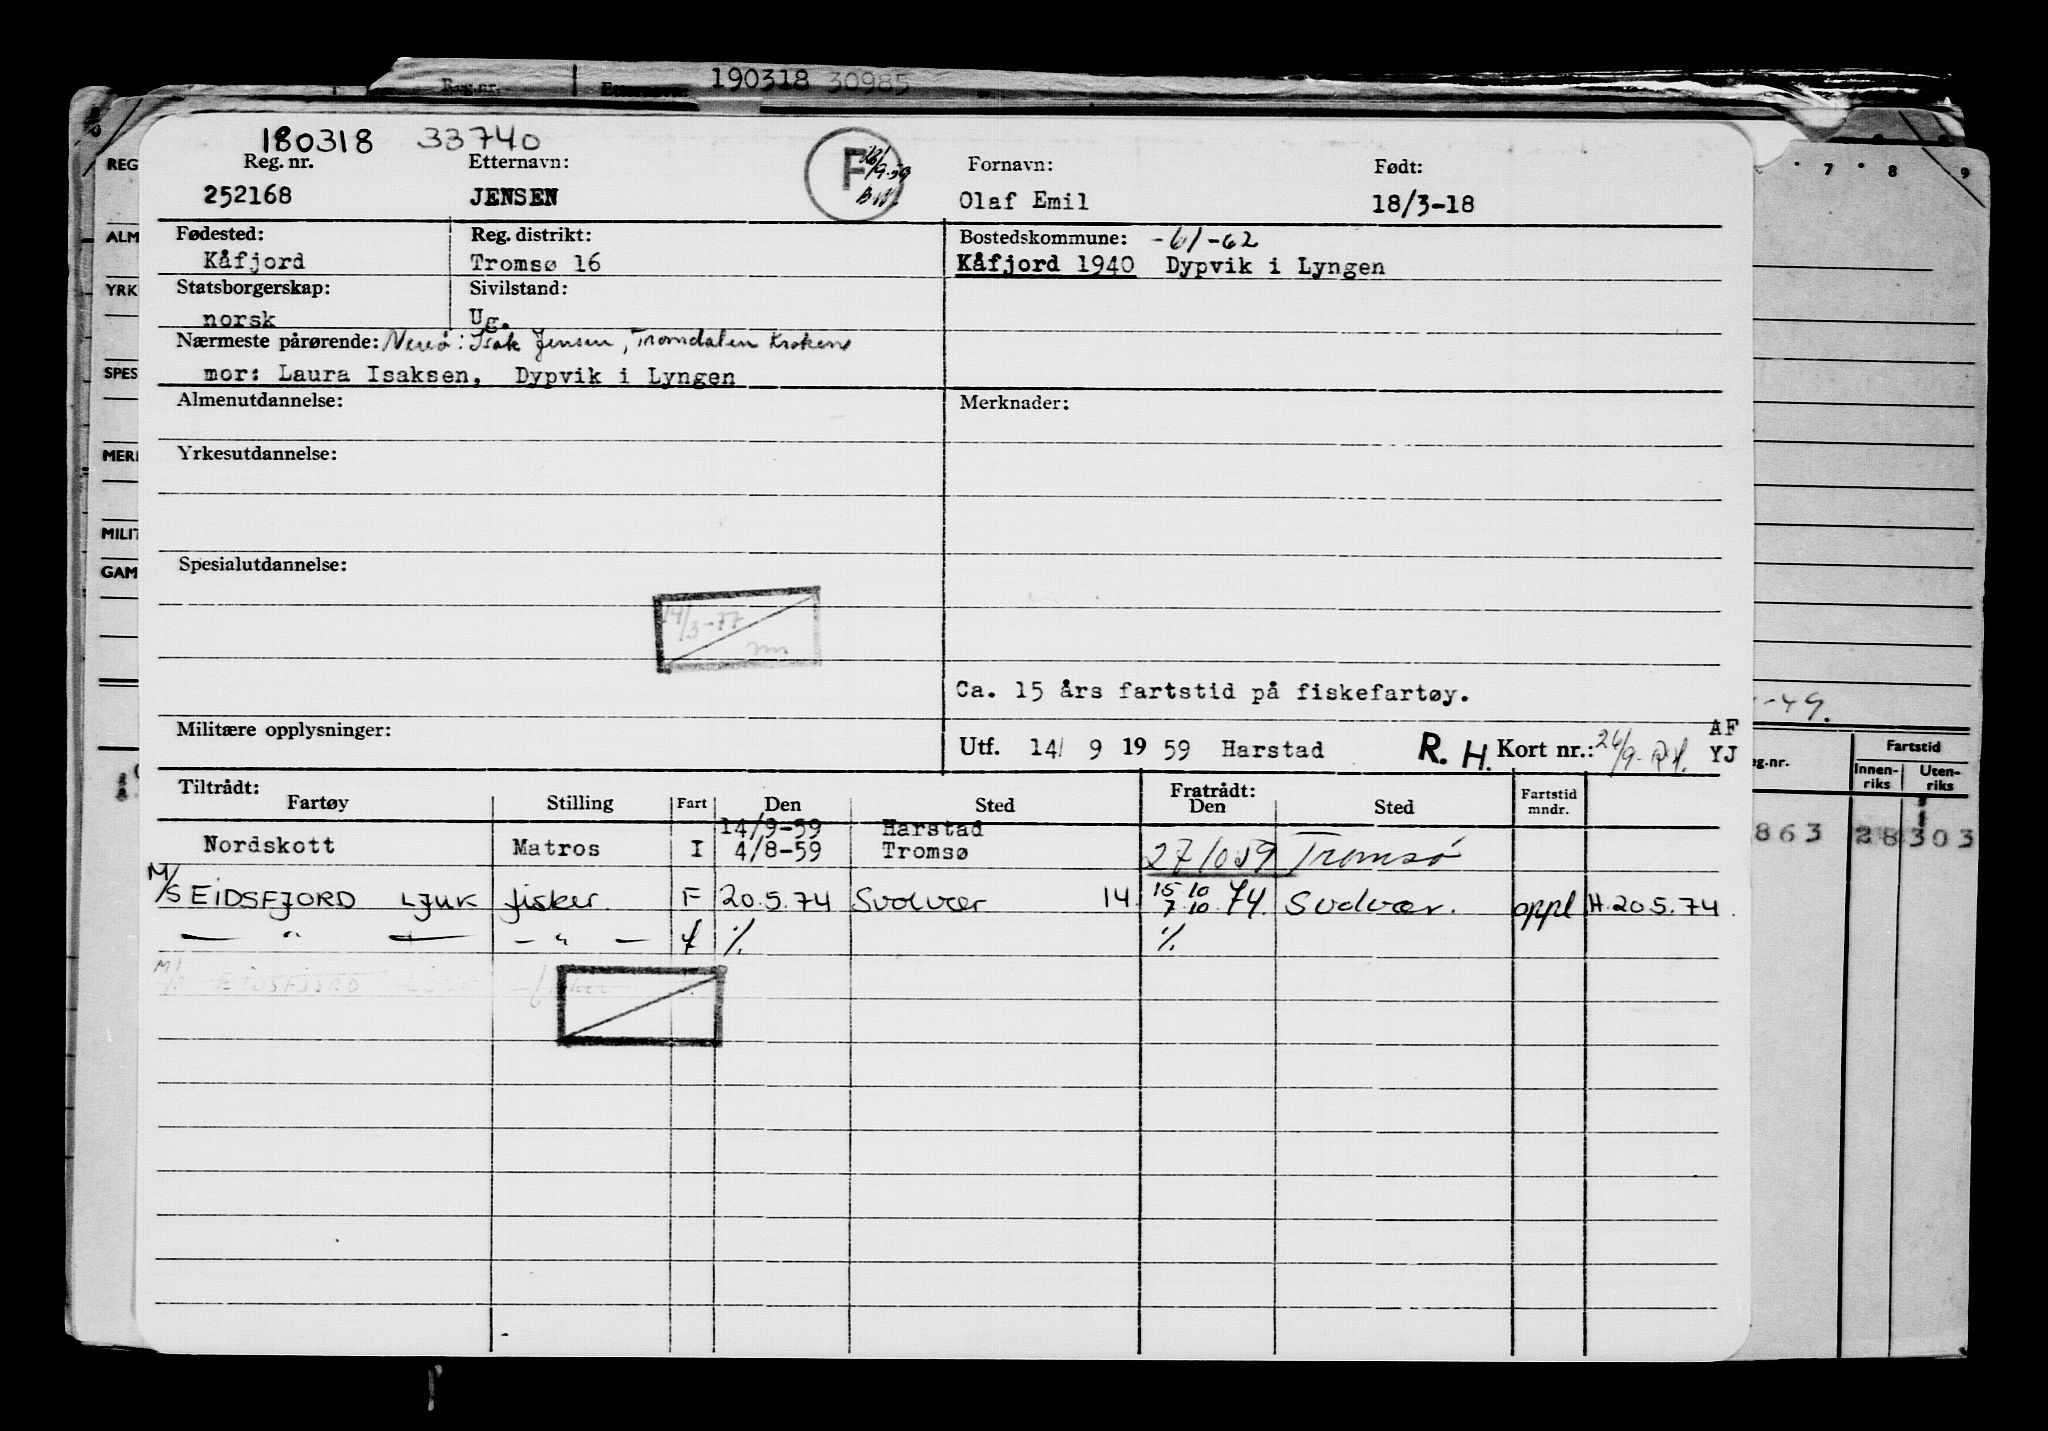 Reg.nr. Etternavn: 190318 30985
180318 33740
Reg. nr. Etternavn: F Fornavn: Født:
252168 JENSEN Olaf Emil 18/3-18
Fødested: Reg. distrikt: Bostedskommune: -61-62
Kåfjord Tromsø 16 Kåfjord 1940 Dypvik i Lyngen
Statsborgerskap: Sivilstand:
norsk Ug.
Nærmeste pårørende: Isak Jensen, Tromdalen
mor: Laura Isaksen, Dypvik i Lyngen
Almenutdannelse: Merknader:
Yrkesutdannelse:
Spesialutdannelse:
14/3-77
Ca. 15 års fartstid på fiskefartøy.
Militære opplysninger: Utf. 14/ 9 19 59 Harstad R. H. Kort nr.: 26/9- AF
YJ
Tiltrådt: Fratrådt:
Fartøy Stilling Fart Den Sted Den Sted Fartstid mndr.
14/9-59 Harstad
Nordskott Matros I 4/8-59 Tromsø 27/10 59 Tromsø
M/S EIDSFJORD LJUK fisker F 20.5.74 Svolvær 14 15 10 7 10 74. Svolvær. oppl H.20.5.74
— " — — " — f % %
M/S EIDSFJORD LJUK fisker
REG
ALM
YRK
SPES
MERK
MILIT
GAM
7 8 9
-49.
eg.nr. Fartstid
Innen-riks Uten-riks
863 28 303